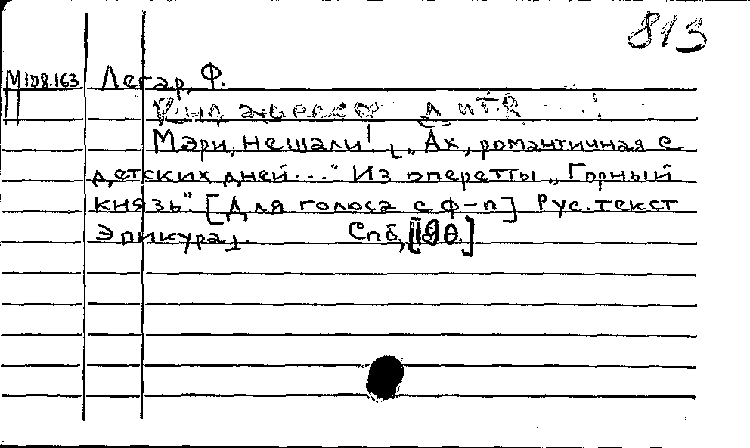 813
М 108.163 Легар, Ф.
Мэри, не шали! "Ах, романтичная с
детских дней..." Из оперетты "Горный
князь". [Для голоса с ф-п] Рус. текст
Эпикура. Спб,